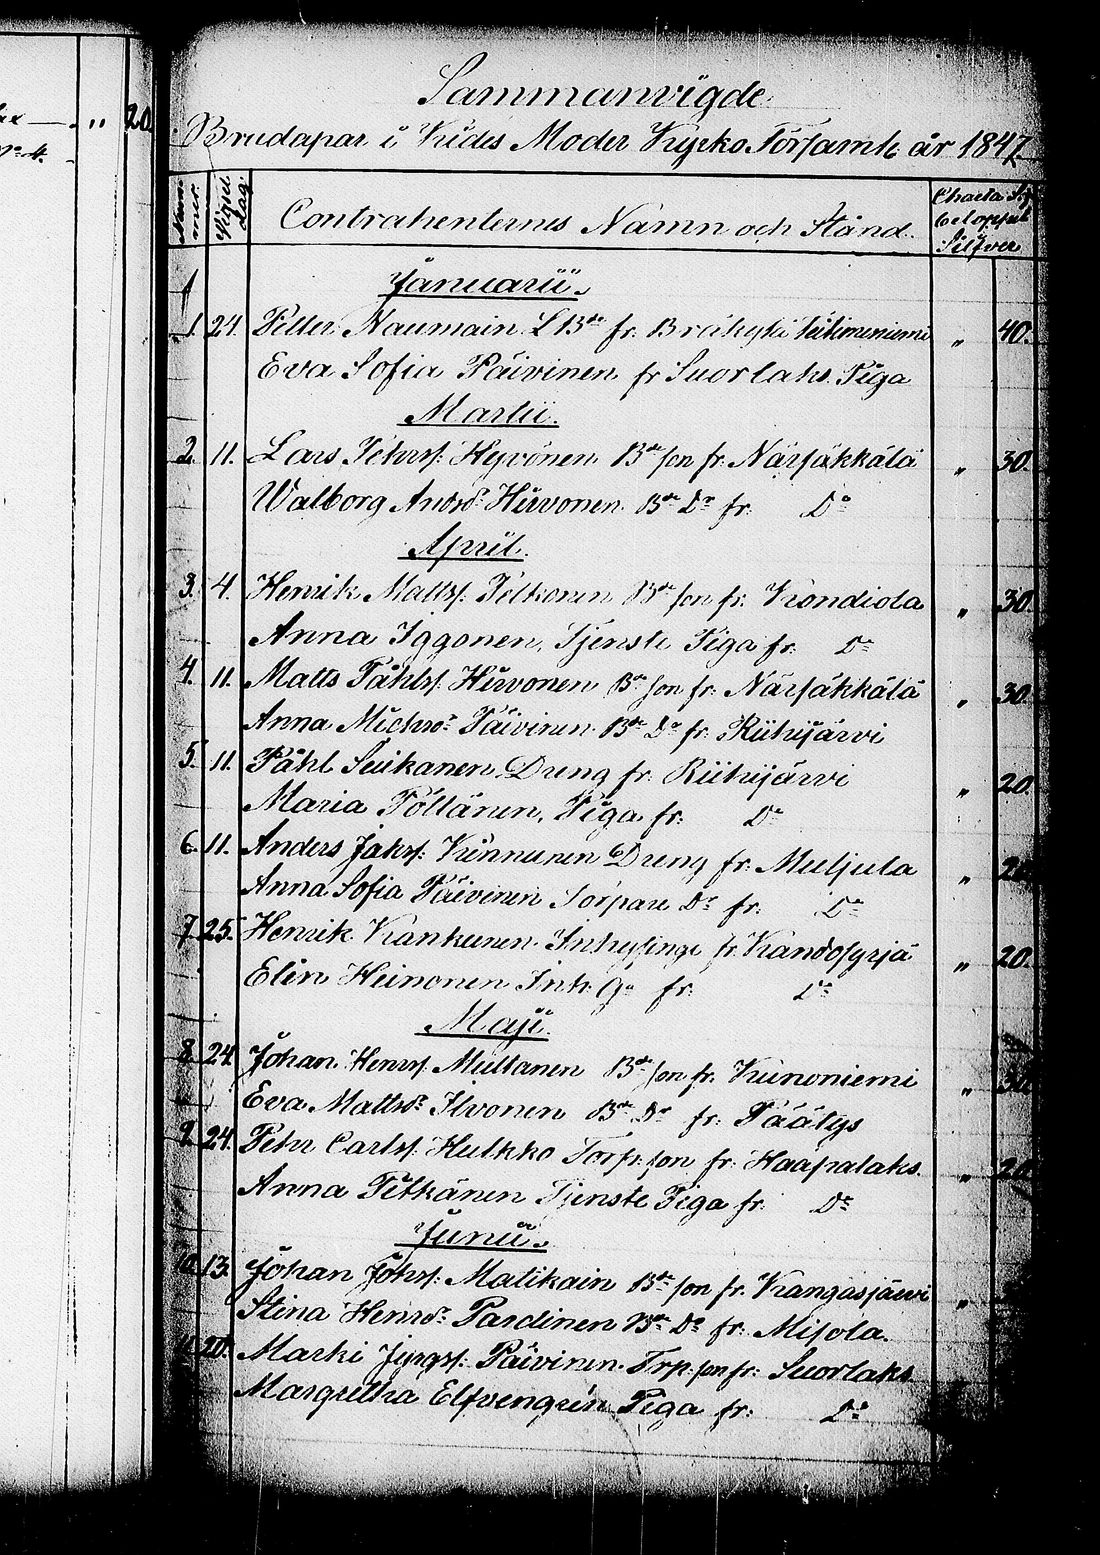 20.
Sammanvigde
Brudapar i Kides Moder Kyrko Församl: år 1847
Num mer. Vigsel dag Contrahenternes Namn och Stånd. Charta Sig. beloppet Silfver
Januarii.
1. 24. Petter Naumain L. Bde fr. Bråkylä " 40.
Eva Sofia Päivinen fr Suorlaks. Piga
Martii.
2. 11. Lars Pehrs: Hyvönen Bde son fr. Närsäkkälä " 30.
Walborg Andrsdr Hirvonen. Bde Dr fr. Do
April.
3. 4. Henrik Matts: Peltonen Bde son fr. Kondiola " 30.
Anna Iggonen, Tjenste Piga fr: Do
4. 11. Matts Påhls: Hirvonen Bde son fr. Närsäkkälä " 30.
Anna Michsdr Päivinen Bde Dr fr. Riihijärvi
5. 11. Påhl Seikanen Dreng fr. Riihijärvi " 20.
Maria Pöllänen, Piga fr: Do
6. 11. Anders Jaks: Kinnunen Dreng fr. Muljula " 20.
Anna Sofia Päivinen Torpare Dr fr. Do
7. 25. Henrik Kankunen Inhysinge fr. Kandosyrjä " 20.
Elin Heinonen Inh. fr. Do
Maji.
8. 24. Johan Henrs: Multanen Bde son fr. Kunoniemi " 30.
Eva Mattsdr Ilvonen Bde Dr fr. Päätys
9. 24. Pehr Carls: Hulkko Torp. son fr. Haapalaks. " 20.
Anna Petkänen Tjenste Piga fr. Do
Junii.
10. 13. Johan Johs: Matikain Bde son fr. Kangasjärvi "
Stina Henrsdr Pardinen Bde Dr fr. Misola.
11. 20. Marki Jirgs: Päivinen Trp. son fr: Suorlaks
Margretha Elfvengren Piga fr: Do